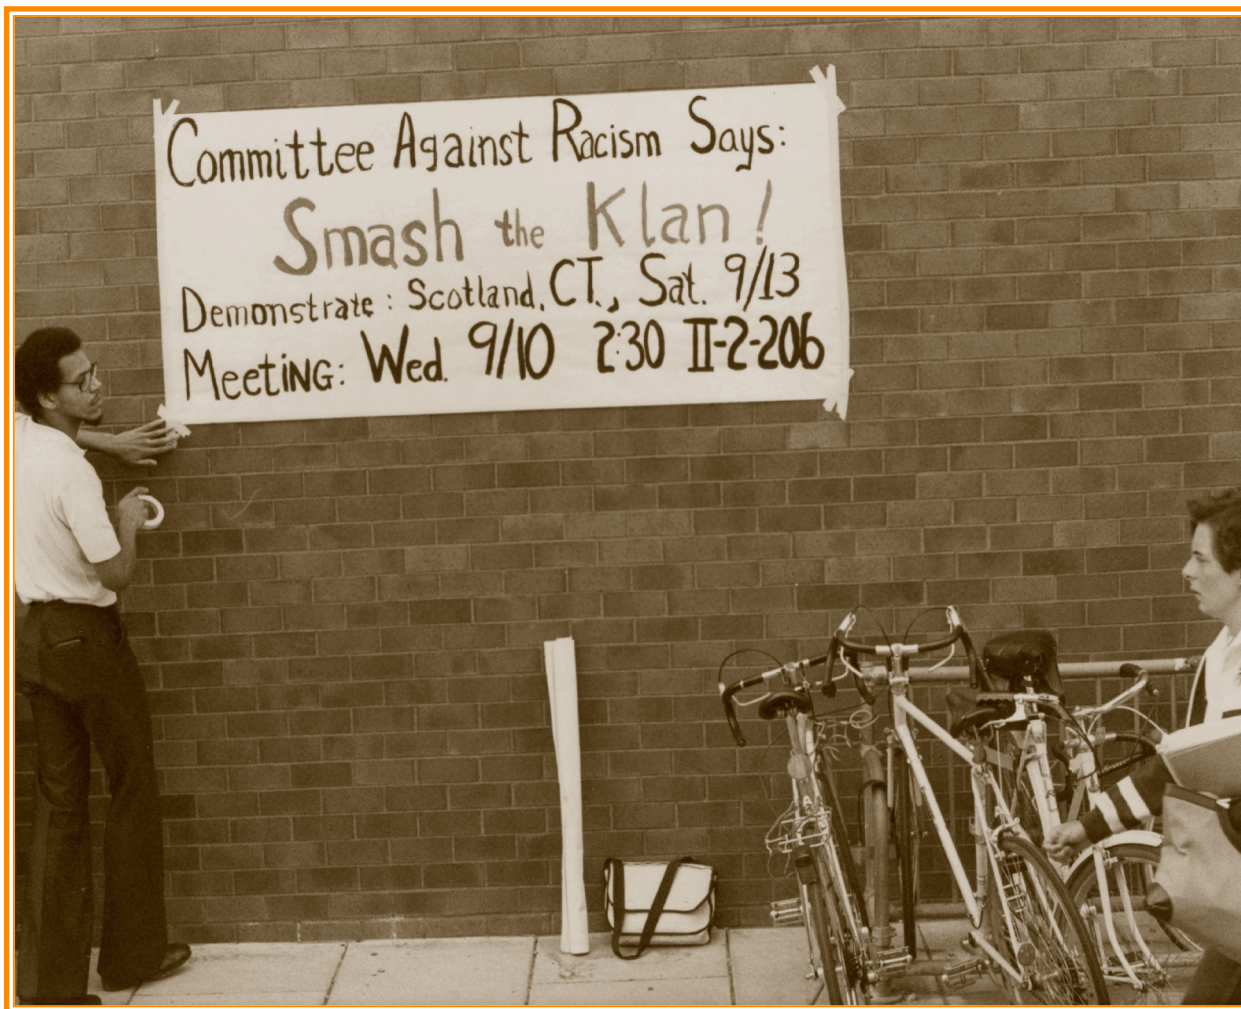 Committee Against Racism Says:
Smash the Klan!
Demonstrate: Scotland, CT., Sat. 9/13
MeetiNG: Wed. 9/10 2:30 II-2-206